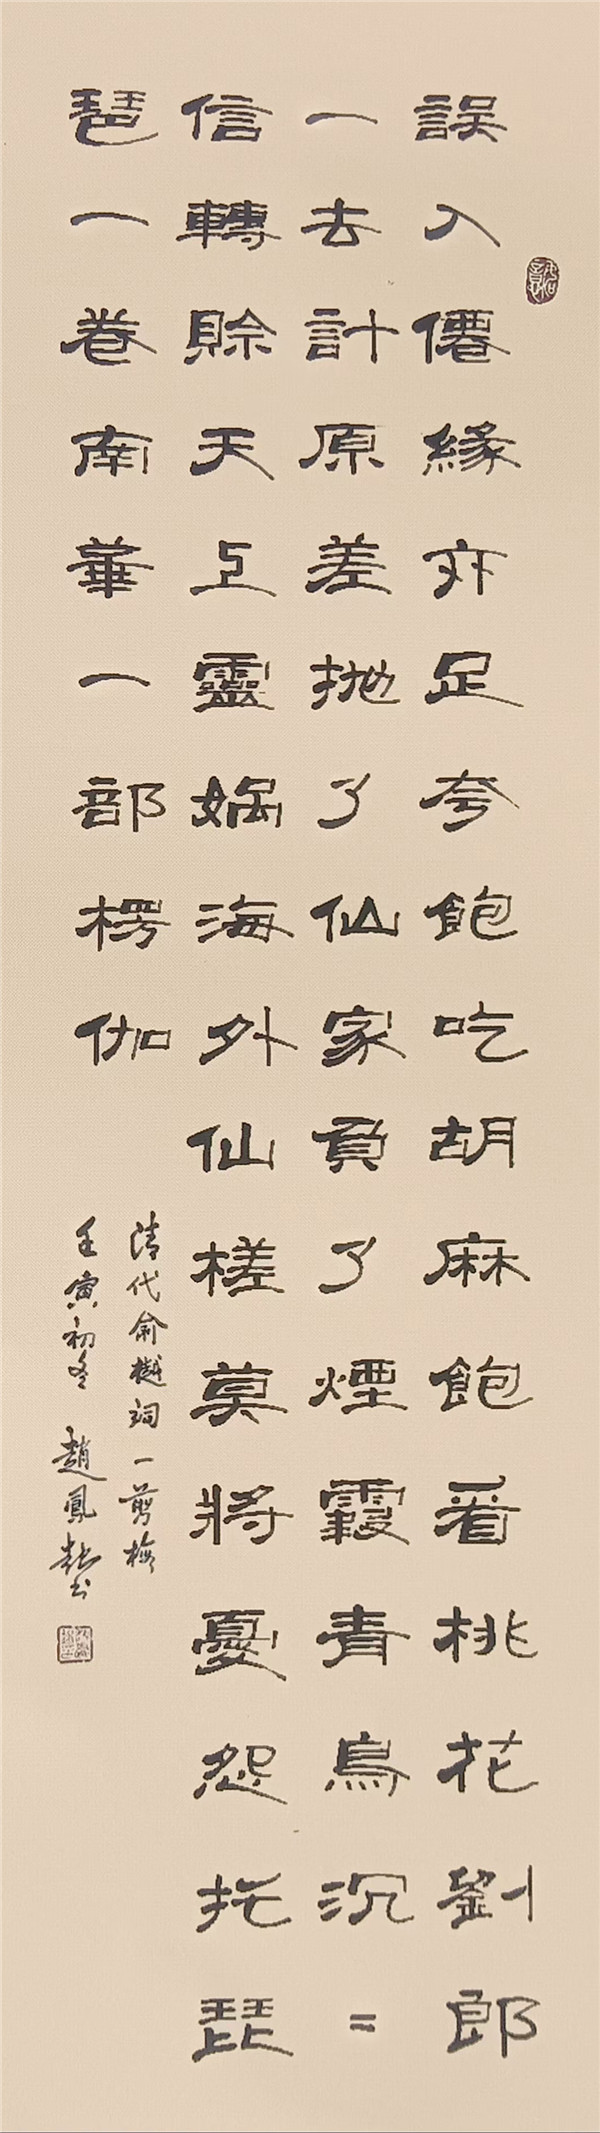 誤入僊緣亦足夸飽吃胡麻飽看桃花劉郎
一去計原差抛了仙家負了煙霞青鳥沉〓
信轉賒天上靈媧海外仙槎莫將憂怨托琵
琶一卷南華一部楞伽
清代俞樾詞一剪梅
壬寅初冬 趙鳳书